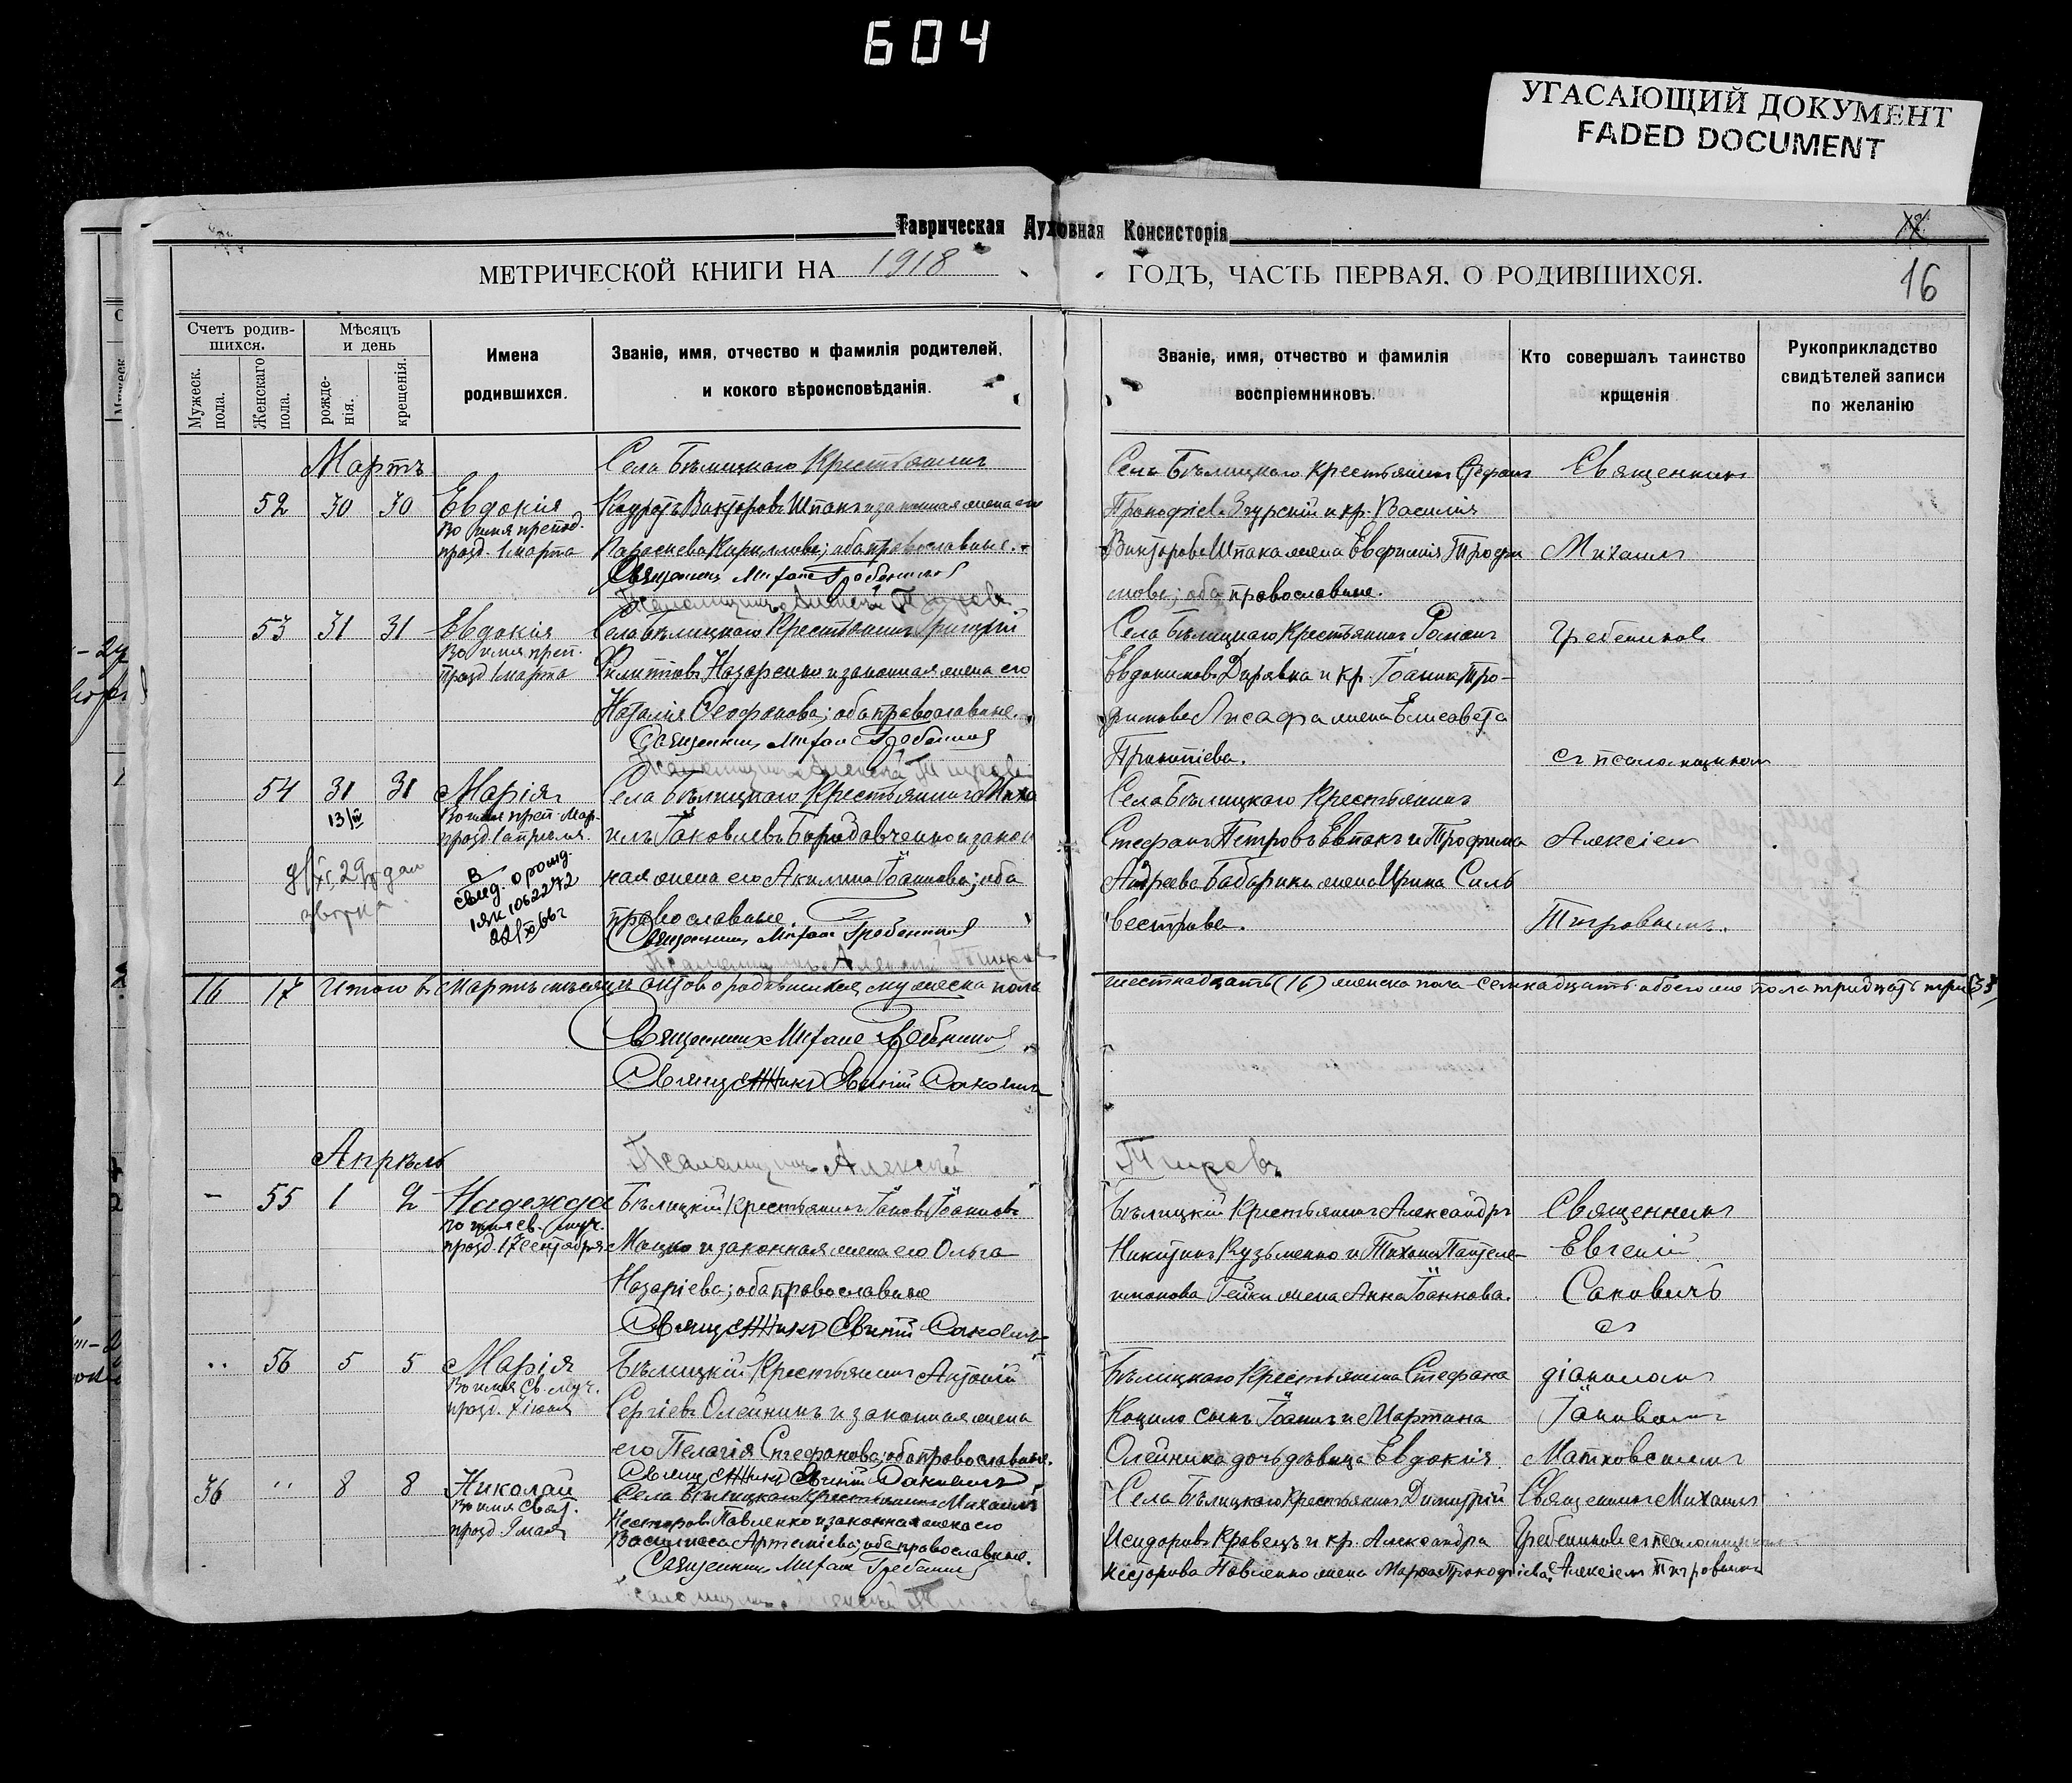 604
УГАСАЮЩИЙ ДОКУМЕНТ
FADED DOCUMENT
Таврическая Духовная Консисторія
МЕТРИЧЕСКОЙ КНИГИ НА 1918 ГОДЪ, ЧАСТЬ ПЕРВАЯ, О РОДИВШИХСЯ.
16
Счетъ родив-
шихся.
Мужеск.
пола.
Женскаго
пола.
Мѣсяцъ
и день
рожде-
нія.
крещенія.
Имена
родившихся.
Званіе, имя, отчество и фамилія родителей,
и кокого вѣроисповѣданія.
Званіе, имя, отчество и фамилія
воспріемниковъ.
Кто совершалъ таинство
крщенія
Рукоприкладство
свидѣтелей записи
по желанію
Мартъ
52 30 30 Евдокія
Во имя препод.
празд. 1 марта
Села Бѣлицкаго Крестьянинъ
Викторовъ Шпакъ и законная жена его
Параскева Кириллова; оба православные.
Священникъ Михаилъ Гребенниковъ
Псаломщикъ Алексій Тигровъ
Села Бѣлицкаго крестьянинъ Стефанъ
Прокофіевъ Згурскій и кр. Василія
Викторова Шпака жена Евфимія Трофи
мова; оба православные.
Священникъ
Михаилъ
53 31 31 Евдокія
Во имя преп.
празд 1 марта
Села Бѣлицкаго Крестьянинъ Григорій
Филиповъ Назаренко и законная жена его
Наталія Феофанова; оба православные.
Священникъ Михаилъ Гребенниковъ
Псаломщикъ Алексій Тигровъ
Села Бѣлицкаго Крестьянинъ Романъ
Евдокимовъ Дирявка и кр. Іоанна Тро-
фимова Лисафа жена Елисавета
Прокопіева.
Гребенниковъ
съ псаломщикомъ
54 31 31 Марія
13/IV
Во имя преп. Мар.
празд 1 апрѣля.
В
свид. о рожд.
1ЯК 1062272
22/XI 66г
Села Бѣлицкаго Крестьянинъ Миха
илъ Іаковлевъ Бородавченко и закон
ная жена его Акилина Іоаннова; оба
православные.
Священникъ Михаилъ Гребенниковъ
Псаломщикъ Алексій Тигровъ
Села Бѣлицкаго Крестьянинъ
Стефанъ Петровъ Евпакъ и Трофима
Андреева Бабарики жена Ирина Силь
вестрова.
Алексіемъ
Тигровымъ.
16 17 Итого въ Мартѣ мѣсяцѣ сего родившихся мужеска пола шестнадцать (16) женска пола - семнадцать обоего же пола тридцать три (33)
Священникъ Михаилъ Гребенниковъ
Священникъ Евгеній Саковичъ
Псаломщикъ Алексій Тигровъ
Апрѣль
- 55 1 2 Надежда
во имя св. муч.
празд. 17 сентября
Бѣлицкій Крестьянинъ Іаковъ Іоанновъ
Мацко и законная жена его Ольга
Назаріева; оба православные
Священникъ Евгеній Саковичъ
Бѣлицкій Крестьянинъ Александръ
Никитинъ Кузьменко и Тихона Пантеле-
имонова Гейки жена Анна Іоаннова.
Священникъ
Евгеній
Саковичъ
съ
56 5 5 Марія
Во имя Св. муч.
празд. 7 іюня
Бѣлицкій Крестьянинъ Антоній
Сергіевъ Олейникъ и законная жена
его Пелагія Стефанова; оба православные.
Священникъ Евгеній Саковичъ
Бѣлицкаго Крестьянина Стефана
Коцило сынъ Іоаннъ и Мартина
Олейника дочь дѣвица Евдокія.
діакономъ
Іаковомъ
Матковскимъ
36 8 8 Николай
Во имя Свят.
празд 9 мая
Села Бѣлицкаго Крестьянинъ Михаилъ
Несторовъ Павленко и законная жена его
Василиса Артеміева; оба православные.
Священникъ Михаилъ Гребенниковъ
Села Бѣлицкаго Крестьянинъ Димитрій
Исидоровъ Кравецъ и кр. Александра
Несторова Павленко жена Марѳа Прокофіева.
Священникъ Михаилъ
Гребенниковъ съ псаломщикомъ
Алексіемъ Тигровымъ